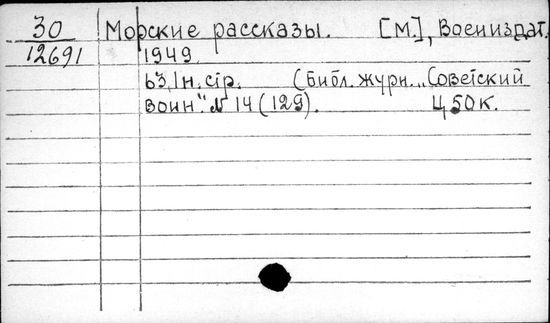 30 Морские рассказы. [М.], Воениздат.
12691 1949.
63, 1н. стр. (Библ. журн. „Советский
воин." № 14 (129). 450к.